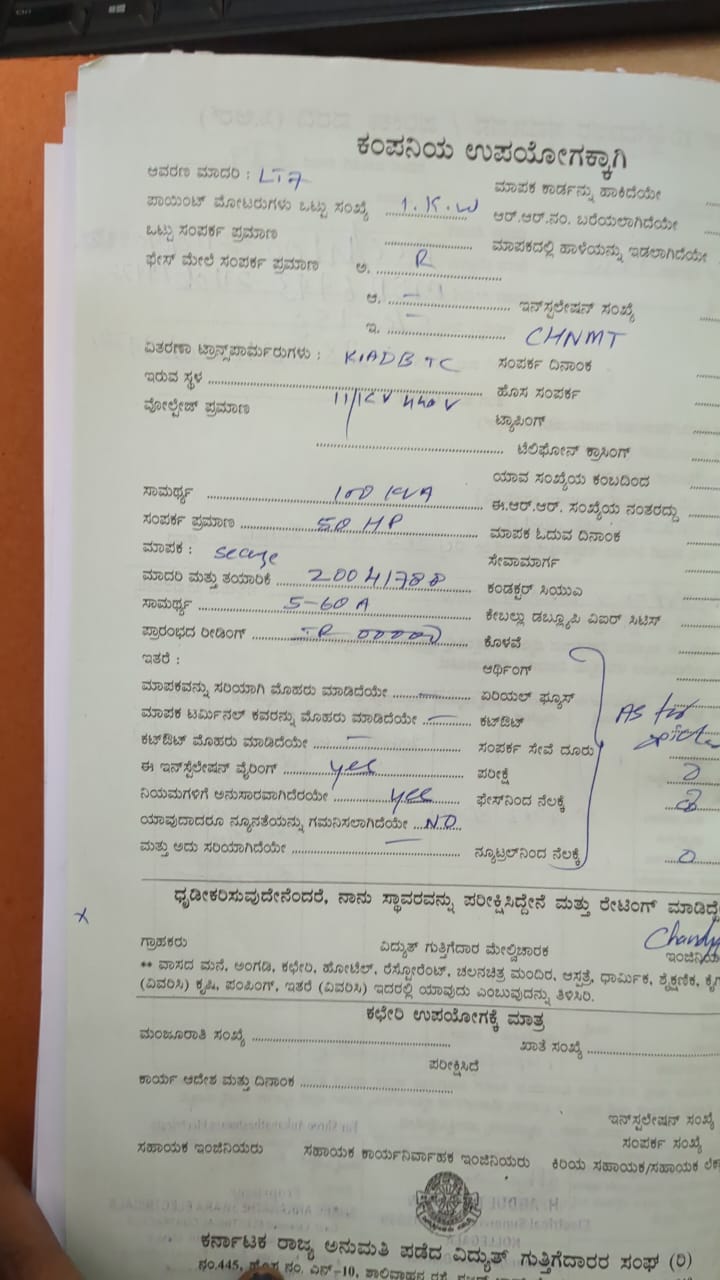 ಕಂಪನಿಯ ಉಪಯೋಗಕ್ಕಾಗಿ
ಆವರಣ ಮಾದರಿ : LT7 ಮಾಪಕ ಕಾರ್ಡನ್ನು ಹಾಕಿದೆಯೇ
ಪಾಯಿಂಟ್ ಮೋಟರುಗಳು ಒಟ್ಟು ಸಂಖ್ಯೆ 1.K.W ಆರ್.ಆರ್.ನಂ. ಬರೆಯಲಾಗಿದೆಯೇ
ಒಟ್ಟು ಸಂಪರ್ಕ ಪ್ರಮಾಣ ಮಾಪಕದಲ್ಲಿ ಹಾಳೆಯನ್ನು ಇಡಲಾಗಿದೆಯೇ
ಫೇಸ್ ಮೇಲೆ ಸಂಪರ್ಕ ಪ್ರಮಾಣ ಅ. R
ಆ. – ಇನ್‌ಸ್ಟಲೇಷನ್ ಸಂಖ್ಯೆ
ಇ. – CHNMT
ವಿತರಣಾ ಟ್ರಾನ್ಸ್‌ಫಾರ್ಮರುಗಳು : KIADB TC ಸಂಪರ್ಕ ದಿನಾಂಕ
ಇರುವ ಸ್ಥಳ ಹೊಸ ಸಂಪರ್ಕ
ವೋಲ್ಟೇಜ್ ಪ್ರಮಾಣ 11/KV 440 V ಟ್ಯಾಪಿಂಗ್
ಟೆಲಿಫೋನ್ ಕ್ರಾಸಿಂಗ್
ಯಾವ ಸಂಖ್ಯೆಯ ಕಂಬದಿಂದ
ಸಾಮರ್ಥ್ಯ 100 KVA ಈ.ಆರ್.ಆರ್. ಸಂಖ್ಯೆಯ ನಂತರದ್ದು
ಸಂಪರ್ಕ ಪ್ರಮಾಣ 50 HP ಮಾಪಕ ಓದುವ ದಿನಾಂಕ
ಮಾಪಕ : secure ಸೇವಾಮಾರ್ಗ
ಮಾದರಿ ಮತ್ತು ತಯಾರಿಕೆ 20041788 ಕಂಡಕ್ಟರ್ ಸಿಯುಎ
ಸಾಮರ್ಥ್ಯ 5-60 A ಕೇಬಲ್ಲು ಡಬ್ಲ್ಯೂಪಿ ವಿಐರ್ ಸಿಟಿಸ್
ಪ್ರಾರಂಭದ ರೀಡಿಂಗ್ IR 00000 ಕೊಳವೆ
ಇತರೆ : ಆರ್ಥಿಂಗ್
ಮಾಪಕವನ್ನು ಸರಿಯಾಗಿ ಮೊಹರು ಮಾಡಿದೆಯೇ ಏರಿಯಲ್ ಫ್ಯೂಸ್
ಮಾಪಕ ಟರ್ಮಿನಲ್ ಕವರನ್ನು ಮೊಹರು ಮಾಡಿದೆಯೇ – ಕಟ್‌ಔಟ್ As
ಕಟ್‌ಔಟ್ ಮೊಹರು ಮಾಡಿದೆಯೇ – ಸಂಪರ್ಕ ಸೇವೆ ದೂರು
ಈ ಇನ್‌ಸ್ಟೆಲೇಷನ್ ವೈರಿಂಗ್ yes ಪರೀಕ್ಷೆ
ನಿಯಮಗಳಿಗೆ ಅನುಸಾರವಾಗಿದೆರಯೇ yes ಫೇಸ್‌ನಿಂದ ನೆಲಕ್ಕೆ
ಯಾವುದಾದರೂ ನ್ಯೂನತೆಯನ್ನು ಗಮನಿಸಲಾಗಿದೆಯೇ NO
ಮತ್ತು ಅದು ಸರಿಯಾಗಿದೆಯೇ – ನ್ಯೂಟ್ರಲ್‌ನಿಂದ ನೆಲಕ್ಕೆ
ಧೃಡೀಕರಿಸುವುದೇನೆಂದರೆ, ನಾನು ಸ್ಥಾವರವನ್ನು ಪರೀಕ್ಷಿಸಿದ್ದೇನೆ ಮತ್ತು ರೇಟಿಂಗ್ ಮಾಡಿದ್ದೇ
x
ಗ್ರಾಹಕರು ವಿದ್ಯುತ್ ಗುತ್ತಿಗೆದಾರ ಮೇಲ್ವಿಚಾರಕ ಇಂಜಿನಿಯ
** ವಾಸದ ಮನೆ, ಅಂಗಡಿ, ಕಛೇರಿ, ಹೋಟೆಲ್, ರೆಸ್ಟೋರೆಂಟ್, ಚಲನಚಿತ್ರ ಮಂದಿರ, ಆಸ್ಪತ್ರೆ, ಧಾರ್ಮಿಕ, ಶೈಕ್ಷಣಿಕ, ಕೈಗ
(ವಿವರಿಸಿ) ಕೃಷಿ, ಪಂಪಿಂಗ್, ಇತರೆ (ವಿವರಿಸಿ) ಇದರಲ್ಲಿ ಯಾವುದು ಎಂಬುವುದನ್ನು ತಿಳಿಸಿರಿ.
ಕಛೇರಿ ಉಪಯೋಗಕ್ಕೆ ಮಾತ್ರ
ಮಂಜೂರಾತಿ ಸಂಖ್ಯೆ ಖಾತೆ ಸಂಖ್ಯೆ
ಪರೀಕ್ಷಿಸಿದೆ
ಕಾರ್ಯ ಆದೇಶ ಮತ್ತು ದಿನಾಂಕ
ಇನ್‌ಸ್ಟಲೇಷನ್ ಸಂಖ್ಯೆ
ಸಂಪರ್ಕ ಸಂಖ್ಯೆ
ಸಹಾಯಕ ಇಂಜಿನಿಯರು ಸಹಾಯಕ ಕಾರ್ಯನಿರ್ವಾಹಕ ಇಂಜಿನಿಯರು ಕಿರಿಯ ಸಹಾಯಕ/ಸಹಾಯಕ ಲೆಕ
ಕರ್ನಾಟಕ ರಾಜ್ಯ ಅನುಮತಿ ಪಡೆದ ವಿದ್ಯುತ್ ಗುತ್ತಿಗೆದಾರರ ಸಂಘ (ರಿ)
ನಂ.445, ಹೊಸ ನಂ. ಎನ್-10, ಶಾಲಿವಾಹನ ರಸ್ತೆ,